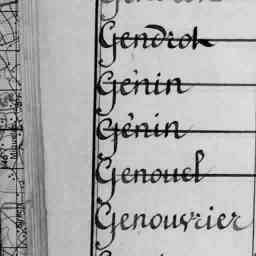 Gendrot
Génin
Génin
Genouel
Genouvrier